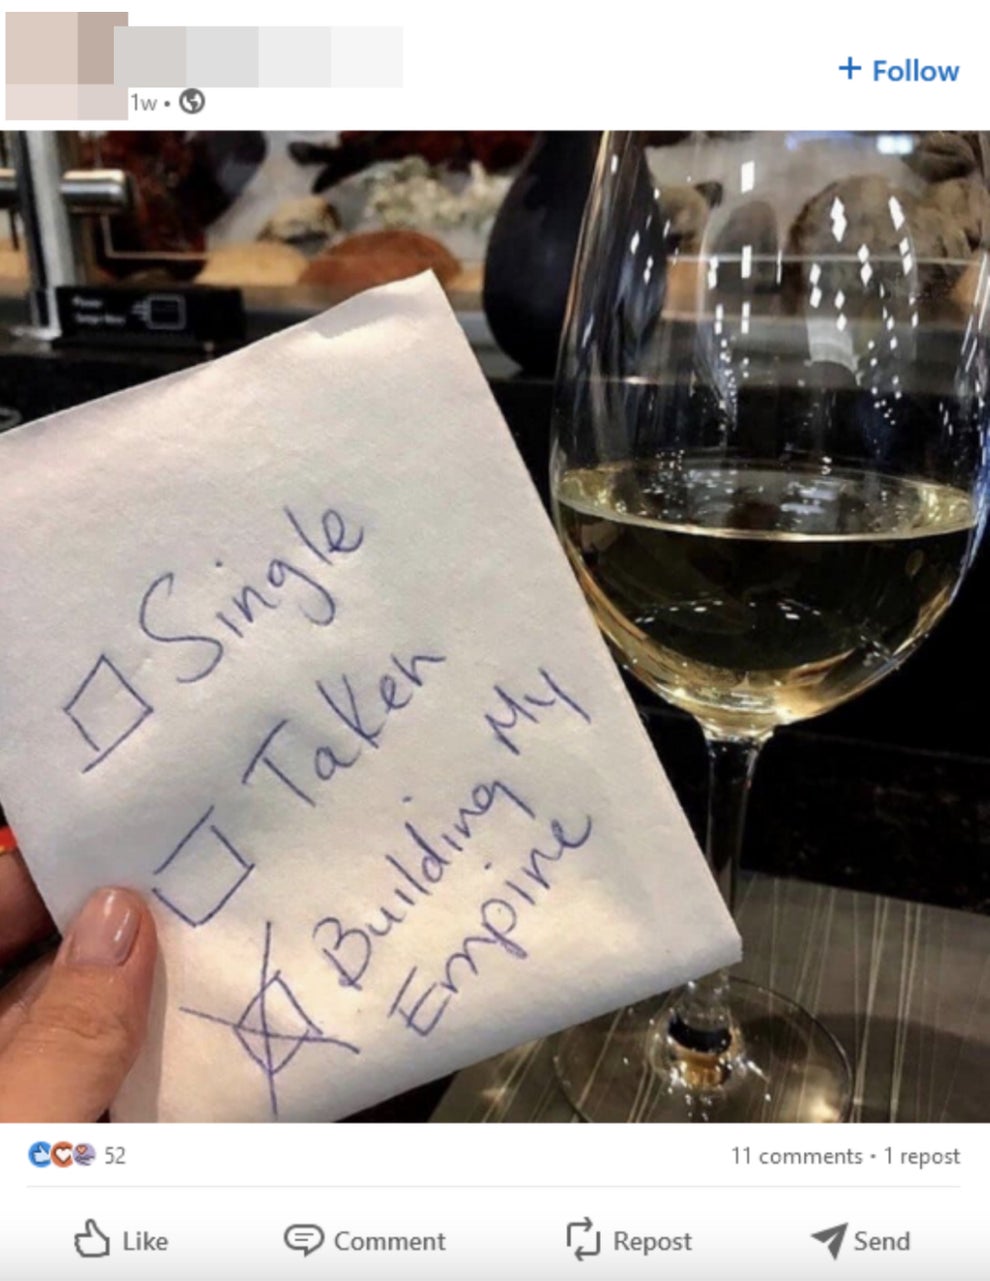 1w •
+ Follow
Single
Taken
Building My
Empire
52
11 comments • 1 repost
Like
Comment
Repost
Send